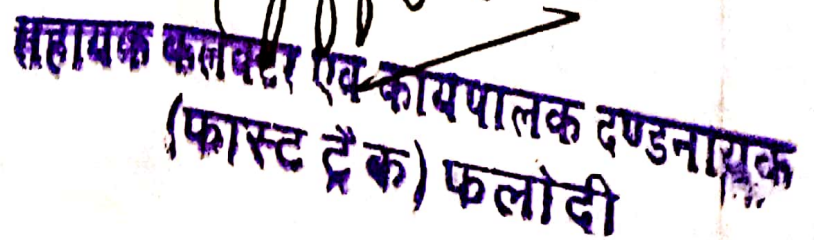 सहायक कलेक्टर एवं कार्यपालक दण्डनायक
(फास्ट ट्रैक) फलोदी